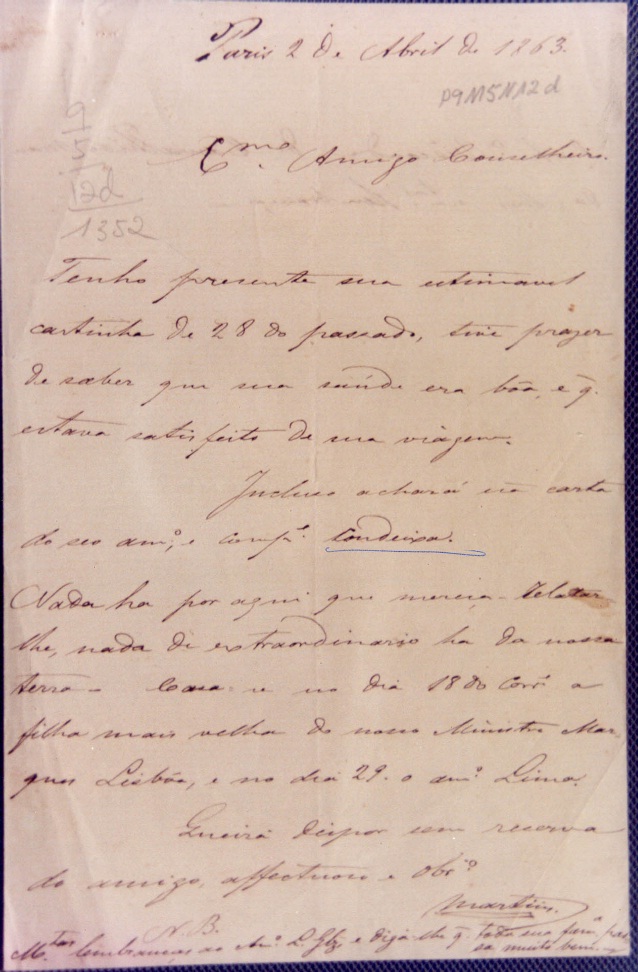 Paris 2 de Abril de 1863.
P9M5N12d
12d
1352
Exmo. Amigo Conselheiro.
Tenho presente sua estimavel
cartinha de 28 do passado, tive prazer
de saber que sua saúde era bôa, e q.
estava satisfeito de sua viagem.
Incluso achará úa carta
do seo amo., e compe. Condeixa.
Nada ha por aqui que mereça relatar
lhe, nada de extraordinario ha da nossa
terra - Casa-se no dia 18 do corre. a
filha mais velha do nosso Ministro Mar
ques Lisbôa, e no dia 29. o amo. Lima.
Queira dispor sem reserva
do amigo, affectuoso e obro.
Martins.
N.B.
Mtas. lembranças ao e diga-lhe q toda sua fama. pas
sa muito bem